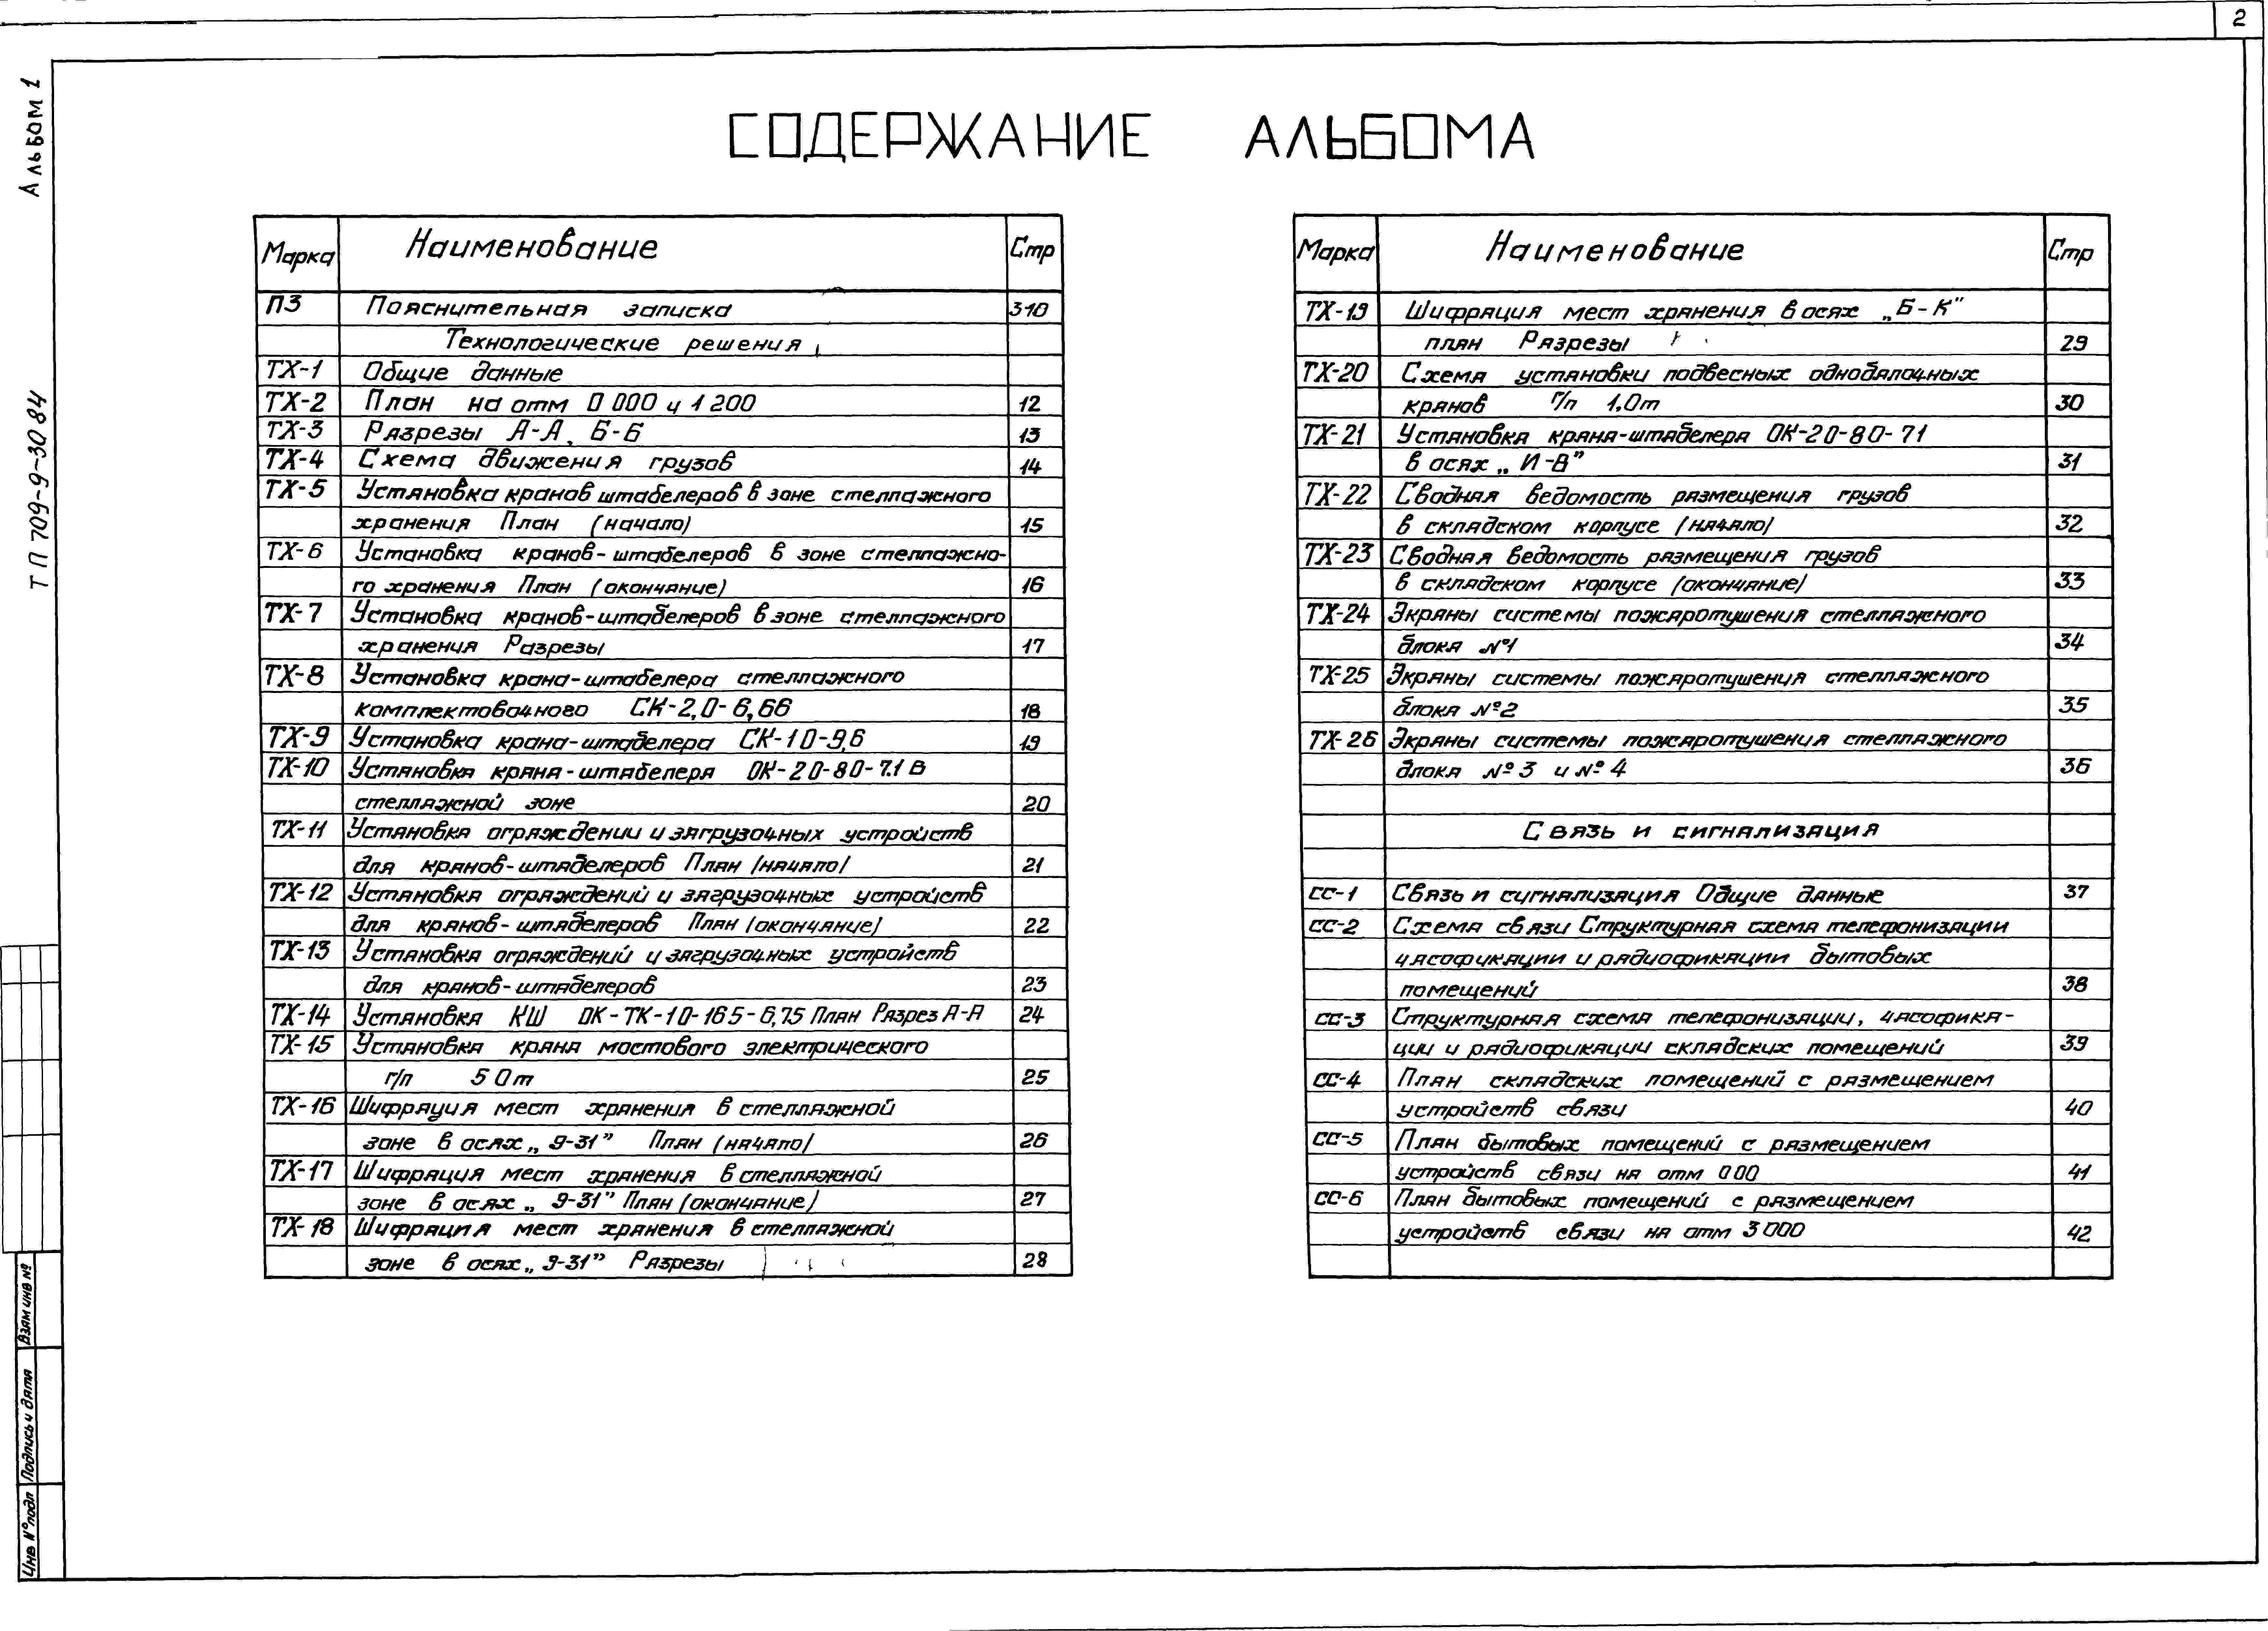 2
Альбом 1
ТП 709-9-30 84
СОДЕРЖАНИЕ АЛЬБОМА
Марка Наименование Стр
ПЗ Пояснительная записка 3-10
Технологические решения
ТХ-1 Общие данные
ТХ-2 План на отм 0 000 и 1 200 12
ТХ-3 Разрезы А-А, Б-Б 13
ТХ-4 Схема движения грузов 14
ТХ-5 Установка кранов штабелеров в зоне стеллажного
хранения План (начало) 15
ТХ-6 Установка кранов-штабелеров в зоне стеллажно-
го хранения План (окончание) 16
ТХ-7 Установка кранов-штабелеров в зоне стеллажного
хранения Разрезы 17
ТХ-8 Установка крана-штабелера стеллажного
комплектовочного СК-2,0-6,66 18
ТХ-9 Установка крана-штабелера СК-1 0-9,6 19
ТХ-10 Установка крана-штабелера ОК-2 0-8 0-7.1 в
стеллажной зоне 20
ТХ-11 Установка ограждении и загрузочных устройств
для кранов-штабелеров План (начало) 21
ТХ-12 Установка ограждений и загрузочных устройств
для кранов-штабелеров План (окончание) 22
ТХ-13 Установка ограждений и загрузочных устройств
для кранов-штабелеров 23
ТХ-14 Установка КШ ОК-ТК-1 0-16 5-6,75 План Разрез А-А 24
ТХ-15 Установка крана мостового электрического
г/п 5 0т 25
ТХ-16 Шифрация мест хранения в стеллажной
зоне в осях „ 9-31” План (начало) 26
ТХ-17 Шифрация мест хранения в стеллажной
зоне в осях „ 9-31” План (окончание) 27
ТХ-18 Шифрация мест хранения в стеллажной
зоне в осях „ 9-31” Разрезы 28
Марка Наименование Стр
ТХ-19 Шифрация мест хранения в осях „Б-К”
план Разрезы 29
ТХ-20 Схема установки подвесных однобалочных
кранов г/п 1,0т 30
ТХ-21 Установка крана-штабелера ОК-2 0-8 0-7 1
в осях „ И-В” 31
ТХ-22 Сводная ведомость размещения грузов
в складском корпусе (начало) 32
ТХ-23 Сводная ведомость размещения грузов
в складском корпусе (окончание) 33
ТХ-24 Экраны системы пожаротушения стеллажного
блока №1 34
ТХ-25 Экраны системы пожаротушения стеллажного
блока №2 35
ТХ-26 Экраны системы пожаротушения стеллажного
блока №3 и №4 36
Связь и сигнализация
СС-1 Связь и сигнализация Общие данные 37
СС-2 Схема связи Структурная схема телефонизации
часофикации и радиофикации бытовых
помещений 38
СС-3 Структурная схема телефонизации, часофика-
ции и радиофикации складских помещений 39
СС-4 План складских помещений с размещением
устройств связи 40
СС-5 План бытовых помещений с размещением
устройств связи на отм 0 00 41
СС-6 План бытовых помещений с размещением
устройств связи на отм 3 000 42
Взам инв №
Подпись и дата
Инв № подл